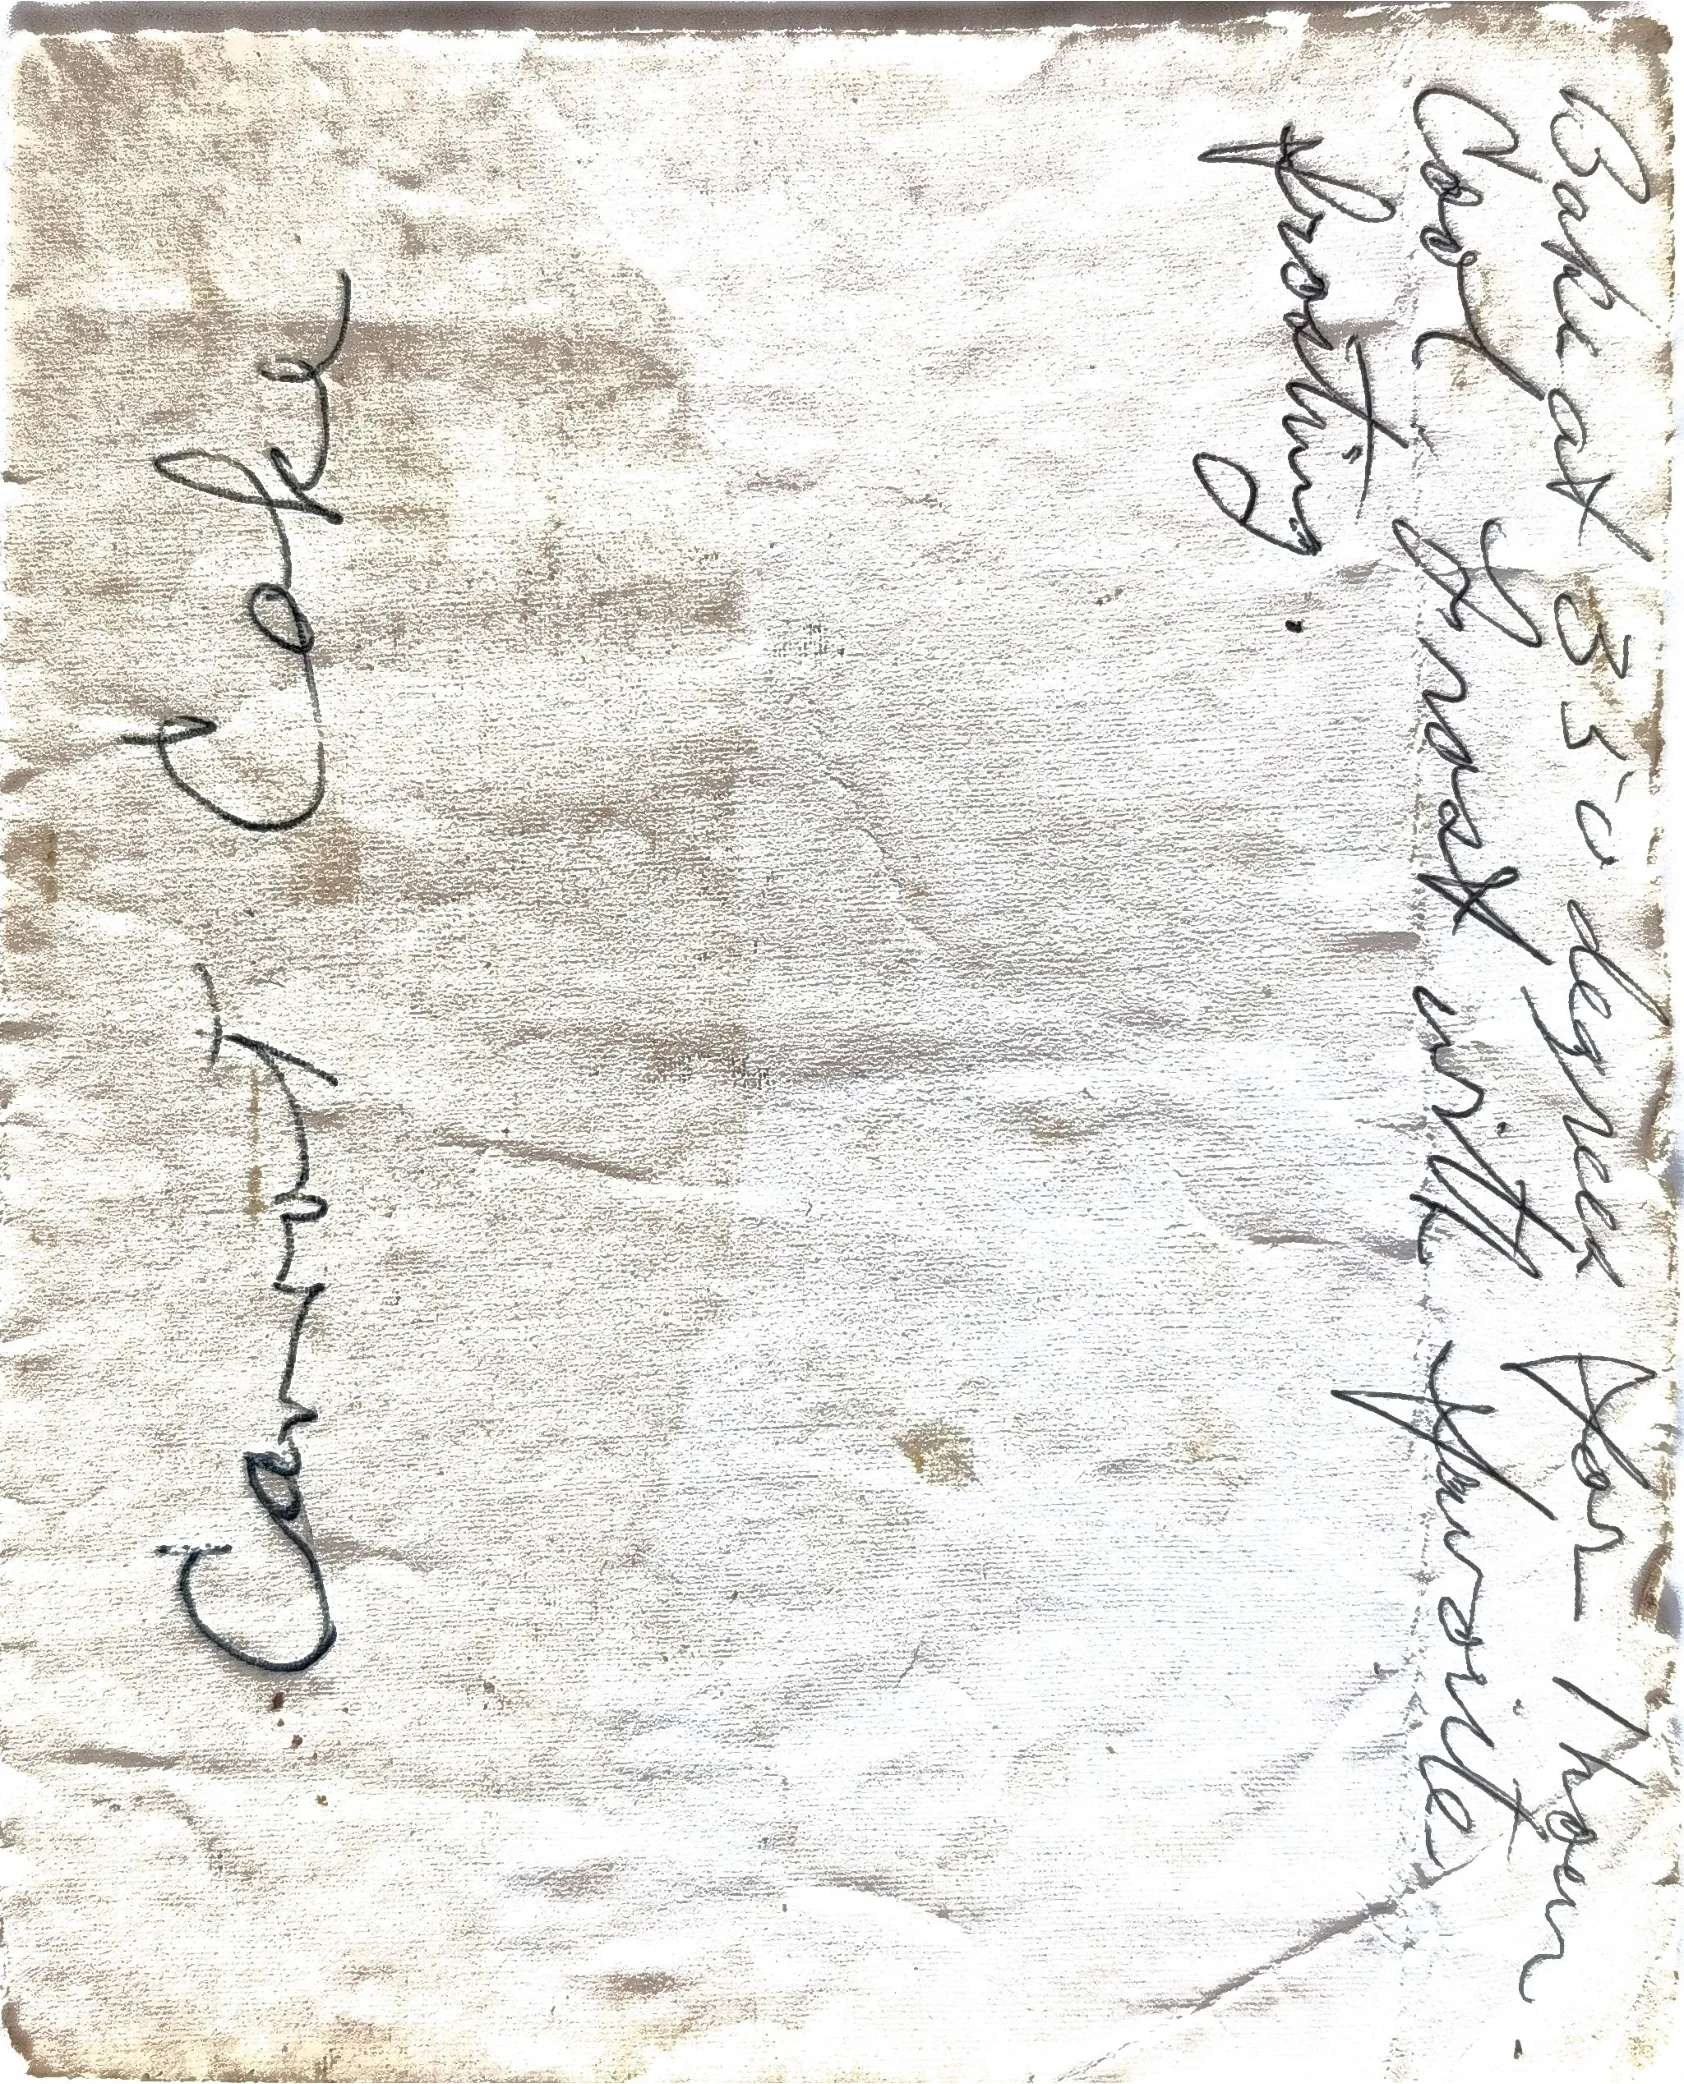 Carrot Cake
Bake at 350 degrees for 1 hour.
Cool frost with favorite
frosting.